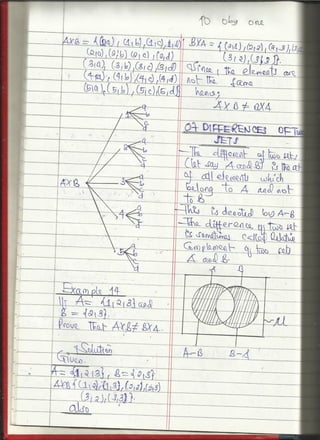 AXB = {(1,a), (1,b), (1,c), (1,d)
(2,a), (2,b) (2,c), (2,d)
(3,a) (3,b), (3,c), (3,d)
(4,a), (4,b), (4,c), (4,d)
(5,a), (5,b), (5,c), (5,d)}
AXB
1
2
3
4
5
Example 14
If A = {1,2,3} and
B = {2,3}.
Prove that AXB ≠ BXA.
Solution
Given
A = {1,2,3}, B = {2,3}
AXB {(1,2), (1,3), (2,2), (2,3)
(3,2), (3,3)}.
also
BXA = {(2,1), (2,2), (2,3),
(3,2), (3,3)}.
Since, the elements are
not the same
hence,
AXB ≠ BXA
07 DIFFERENCES OF TWO
SETS
- The different of two sets
(let say A and B) is the set
of all elements which
belong to A and not
to B
- This is denoted by A-B
- The difference of two set
is sometimes called Relative
Complement of two sets
A and B.
A B
μ
A-B B-A